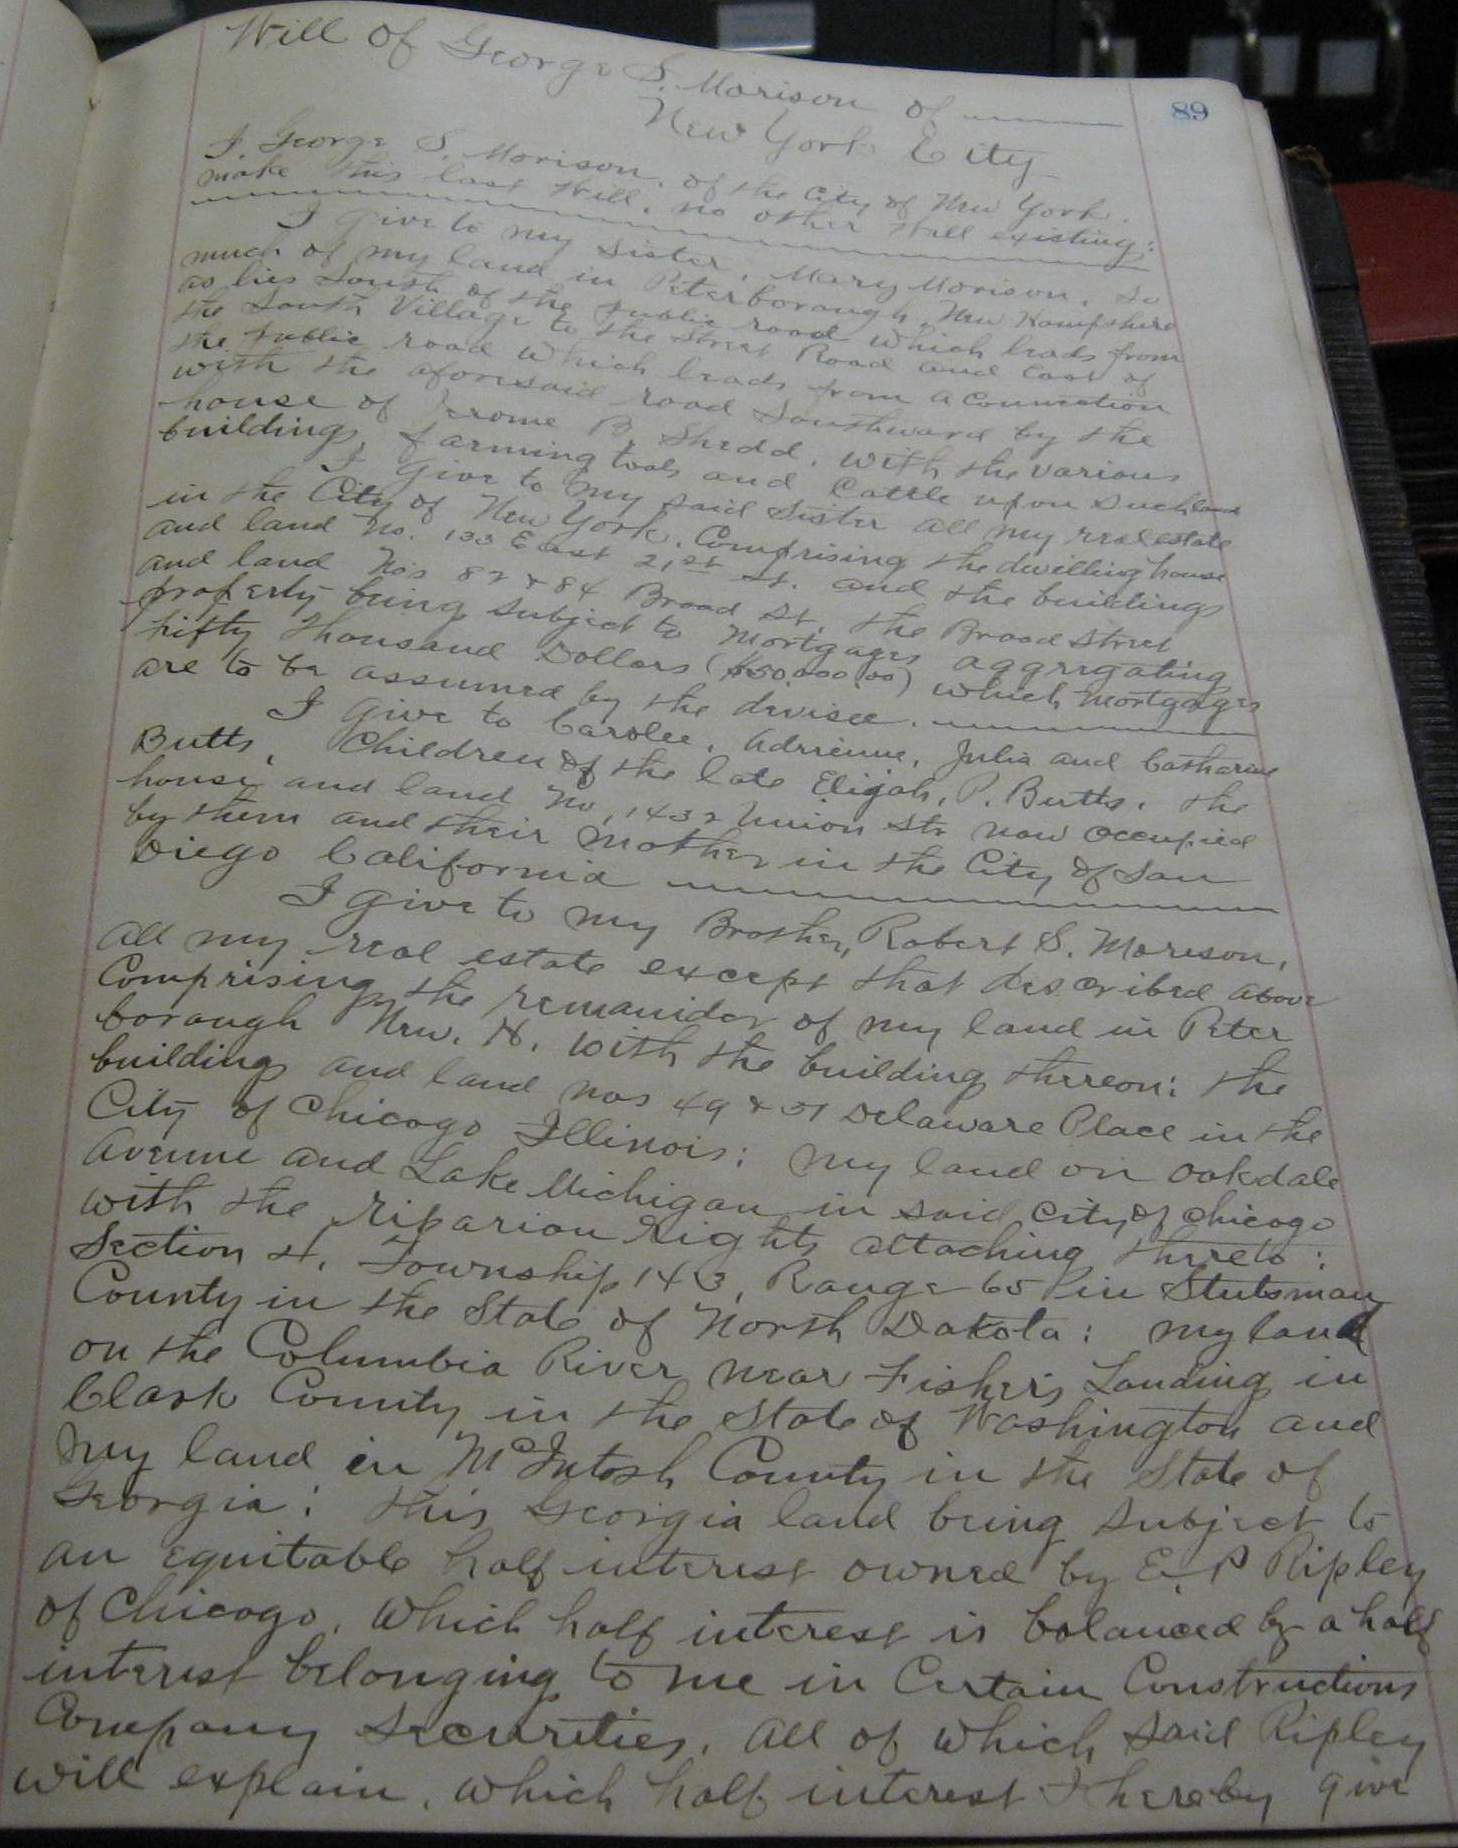 Will of George S. Morison of
89
New York City
I, George S. Morison, of the City of New York,
make this last Will, no other Will existing:
I give to my Sister, Mary Morison, so
much of my land in Peterborough, New Hampshire
as lies South of the public road which leads from
the South Village to the Street Road and East of
the public road which leads from a Connection
with the aforesaid road Southward by the
house of Jerome B. Shedd, with the various
buildings, farming tools and Cattle upon such land
I Give to my said Sister all my real estate
in the City of New York, Comprising the dwelling house
and land No. 133 East 21st St. and the buildings
and land Nos 82 & 84 Broad St, the Broad Street
property being subject to Mortgages aggregating
fifty thousand Dollars ($50,000.00) which Mortgages
are to be assumed by the devisee.
I give to Carolee, Adrienne, Julia and Catharine
Butts, Children of the late Elijah, P. Butts, the
house and land No, 1432 Union Str now occupied
by them and their mother in the City of San
Diego California
I give to my Brother, Robert S. Morison,
all my real estate except that described above
Comprising the remainder of my land in Peter
borough New. H. with the building thereon: the
building and land nos 49 & 51 Delaware Place in the
City of Chicago Illinois: my land on Oakdale
Avenue and Lake Michigan in said City of Chicago
with the riparian Rights attaching thereto:
Section 4, Township 143, Range 65 in Stutsman
County in the State of North Dakota: my land
on the Columbia River near Fisher's Landing in
Clark County in the State of Washington and
my land in McIntosh County in the State of
Georgia: this Georgia land being subject to
an equitable half interest owned by E. P Ripley
of Chicago, which half interest is balanced by a half
interest belonging to me in Certain Constructions
Company Securities, all of which said Ripley
will explain, which half interest I hereby give